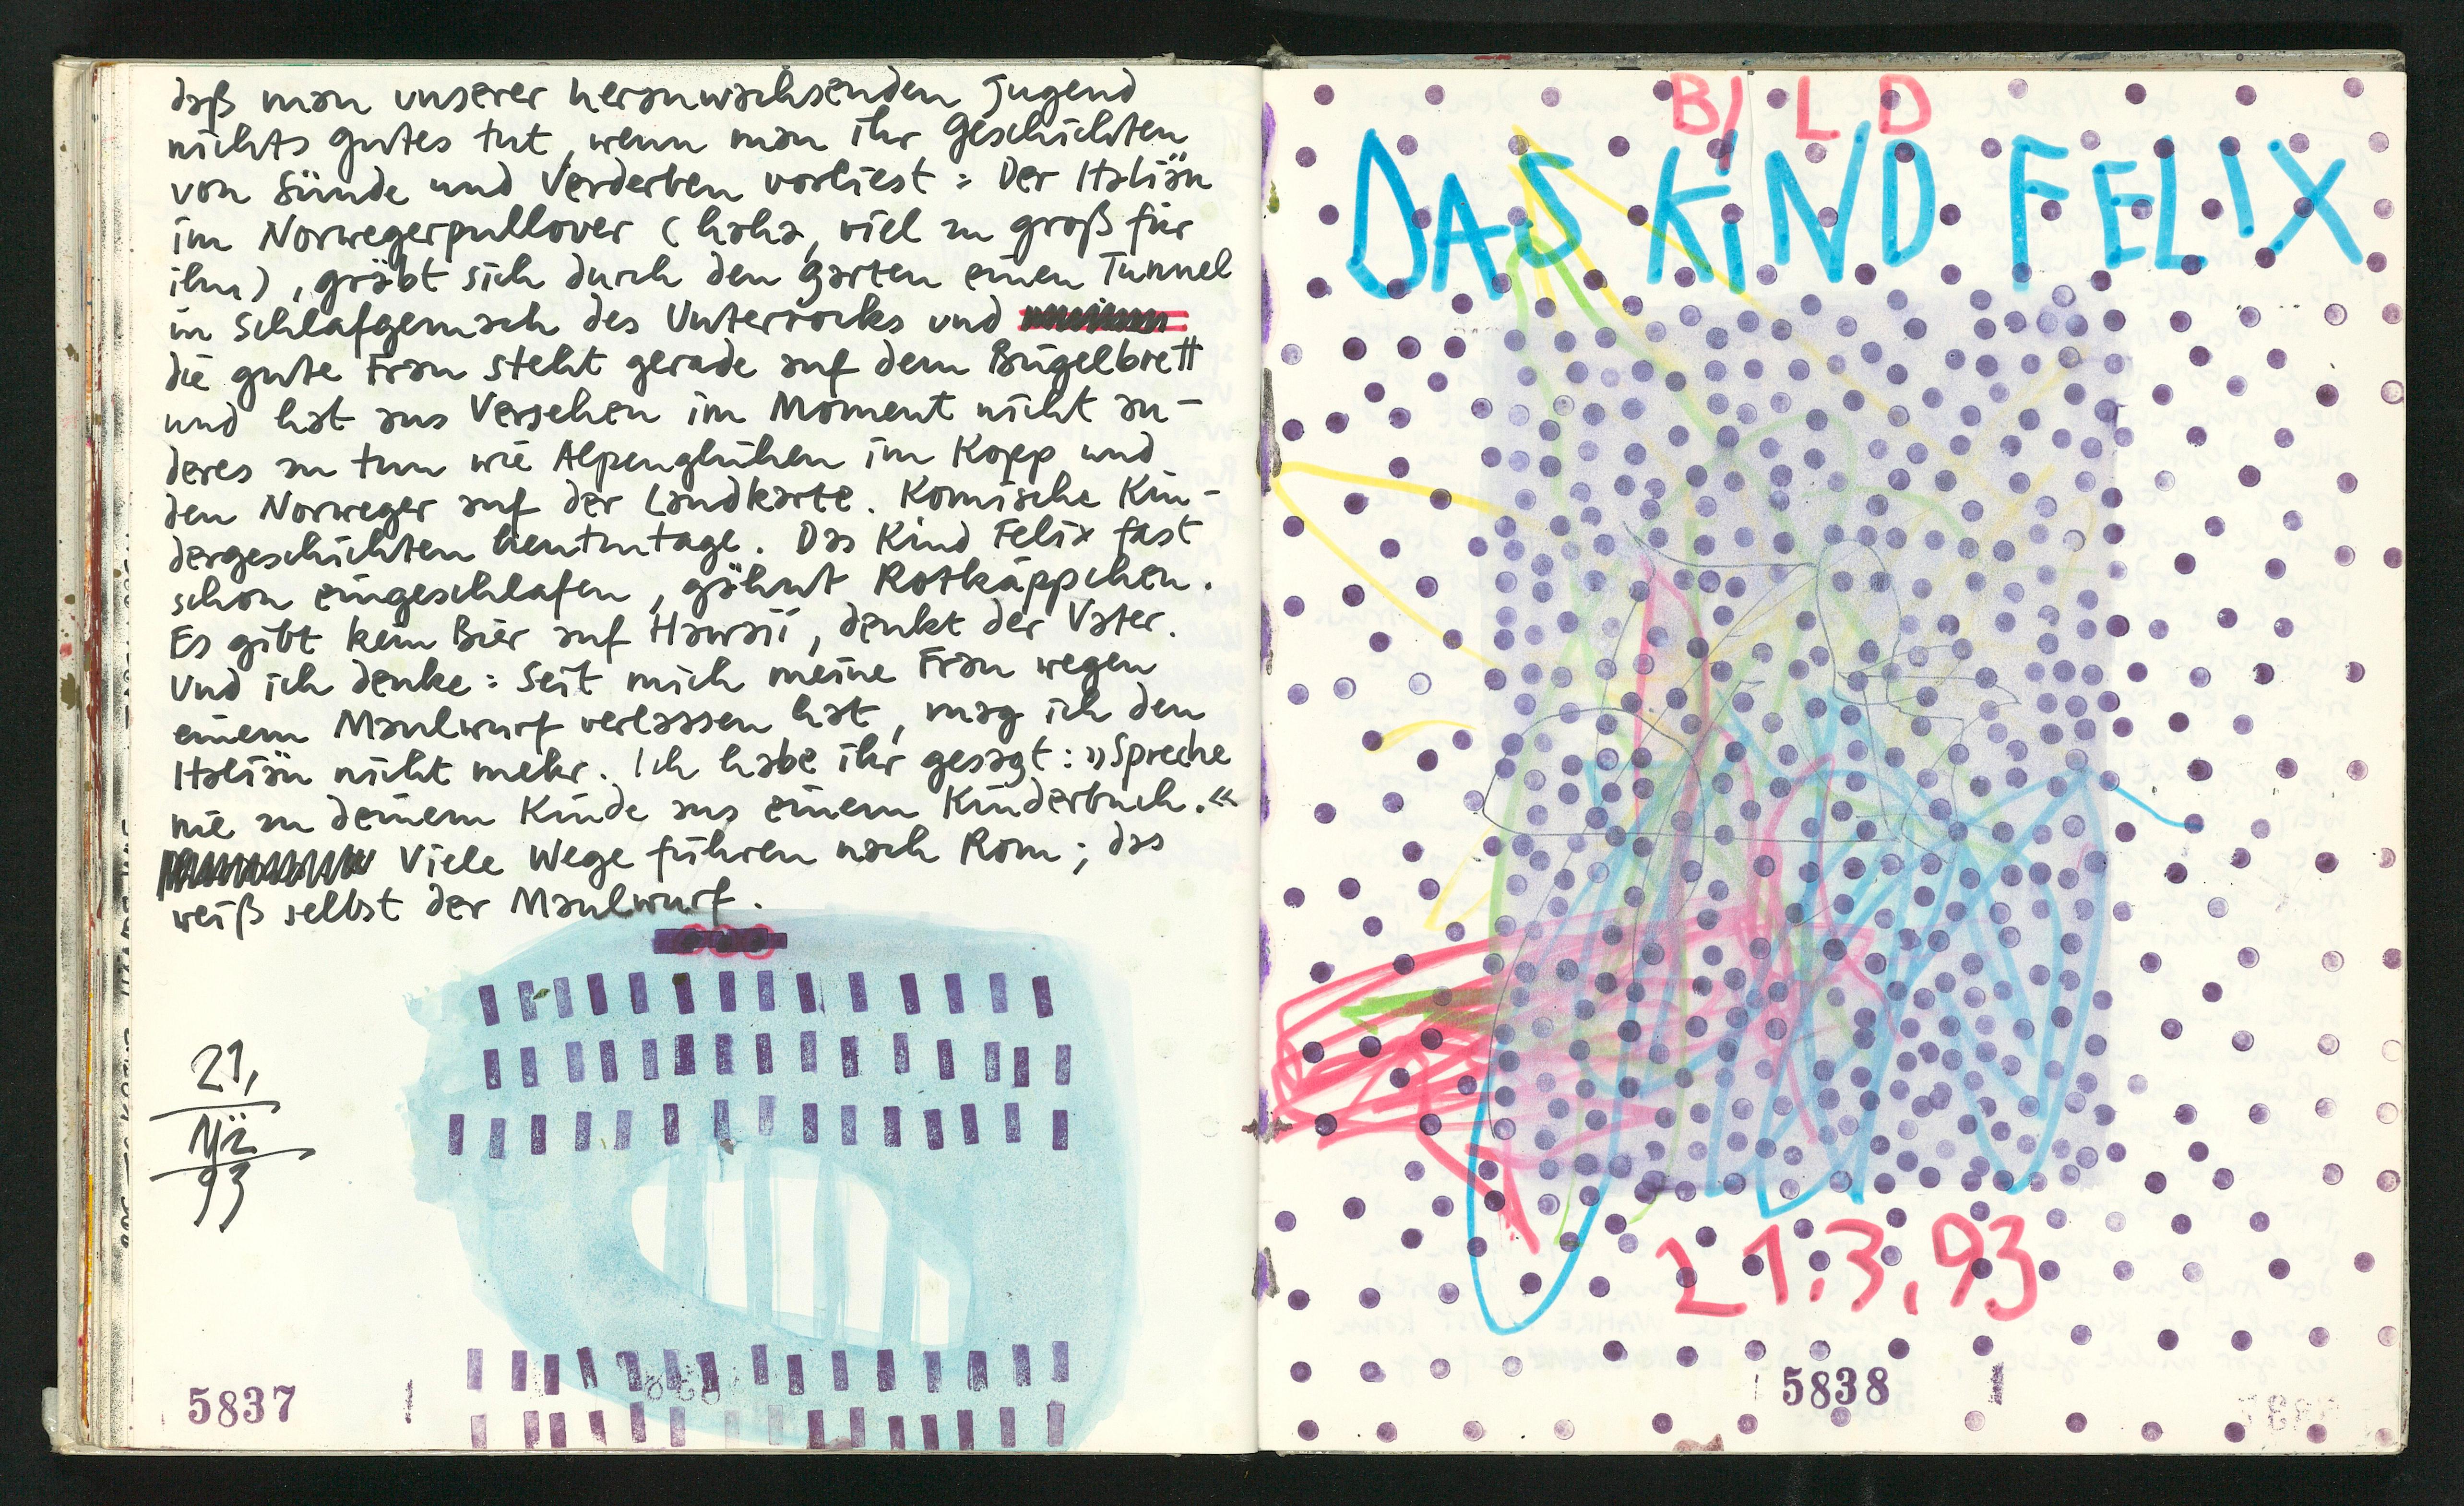 daß man unserer heranwachsenden Jugend
nichts gutes tut, wenn man ihr Geschichten
von Sünde und Verderben vorliest: Der Itsliän
im Norwegerpullover (haha, viel zu groß für
ihn), gräbt sich durch den Garten einen Tunnel
in Schlafgemach des Unterrocks und
die gute Frau steht gerade auf dem Bügelbrett
und hat aus Versehen im Moment nicht an-
deres zu tun wie Alpenglühen im Kopp und
den Norweger auf der Landkarte. Komische Kin-
dergeschichten heutzutage. Das Kind Felix fast
schon eingeschlafen, gähnt Rotkäppchen.
Es gibt kein Bier auf Hawaii, denkt der Vater.
Und ich denke: Seit mich meine Frau wegen
einem Maulwurf verlassen hat, mag ich den
Itsliän nicht mehr. Ich habe ihr gesagt: »Spreche
nie zu deinem Kinde aus einem Kinderbuch.«
Viele Wege führen nach Rom; das
weiß selbst der Maulwurf.
21,
Mä
93
5837
BILD
DAS KiND FELIX
21.3.93
5838